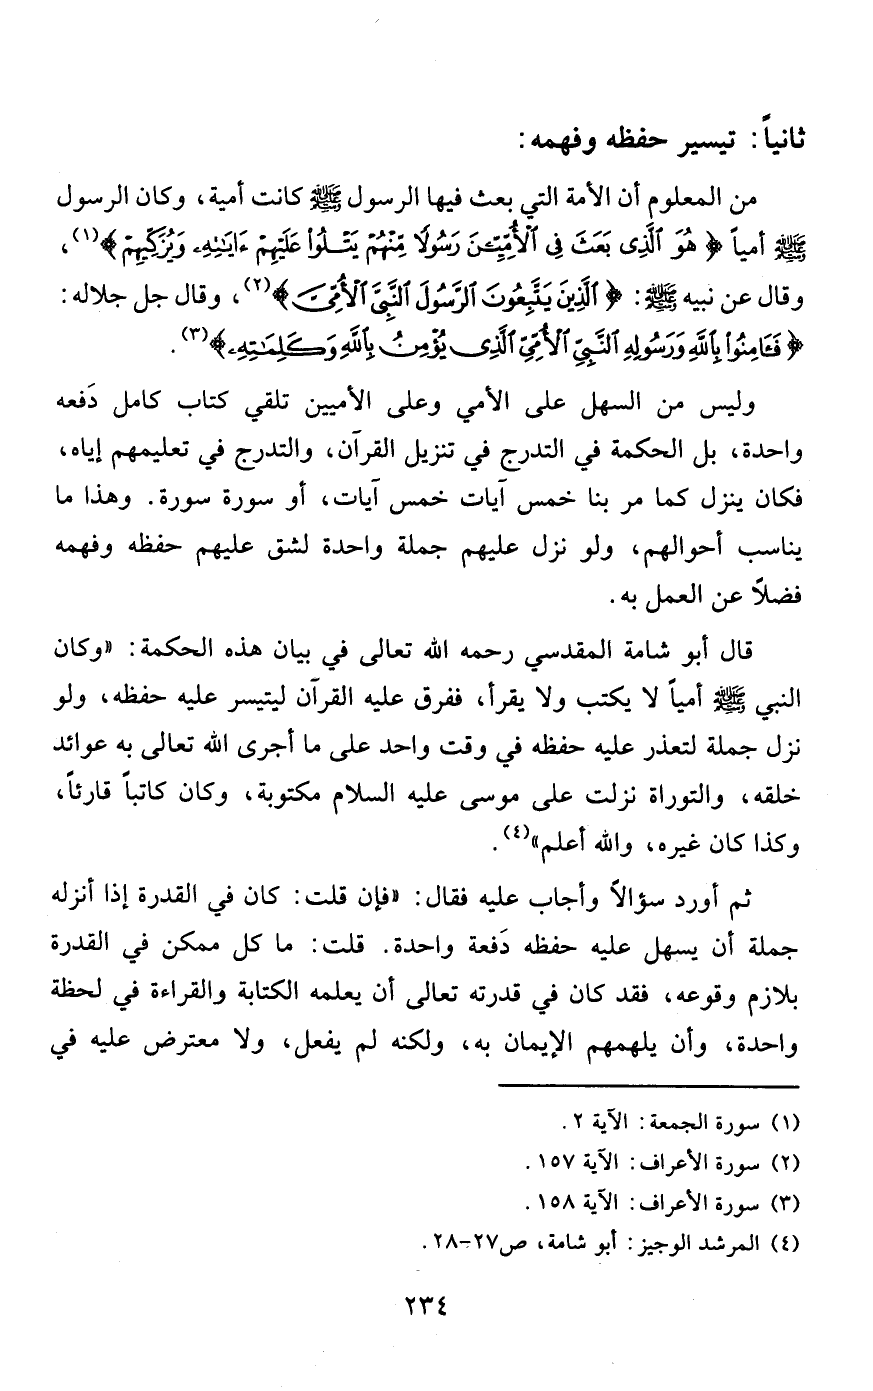 ثانياً: تيسير حفظه وفهمه:
من المعلوم أن الأمة التي بعث فيها الرسول ﷺ كانت أمية، وكان الرسول
ﷺ أمياً ﴿ هُوَ ٱلَّذِى بَعَثَ فِى ٱلْأُمِّيِّـۧنَ رَسُولًا مِّنْهُمْ يَتْلُوا۟ عَلَيْهِمْ ءَايَٰتِهِۦ وَيُزَكِّيهِمْ ﴾(١)،
وقال عن نبيه ﷺ: ﴿ ٱلَّذِينَ يَتَّبِعُونَ ٱلرَّسُولَ ٱلنَّبِىَّ ٱلْأُمِّىَّ ﴾(٢)، وقال جل جلاله:
﴿ فَـَٔامِنُوا۟ بِٱللَّهِ وَرَسُولِهِ ٱلنَّبِىِّ ٱلْأُمِّىِّ ٱلَّذِى يُؤْمِنُ بِٱللَّهِ وَكَلِمَٰتِهِۦ ﴾(٣).
وليس من السهل على الأمي وعلى الأميين تلقي كتاب كامل دَفعه
واحدة، بل الحكمة في التدرج في تنزيل القرآن، والتدرج في تعليمهم إياه،
فكان ينزل كما مر بنا خمس آيات خمس آيات، أو سورة سورة. وهذا ما
يناسب أحوالهم، ولو نزل عليهم جملة واحدة لشق عليهم حفظه وفهمه
فضلاً عن العمل به.
قال أبو شامة المقدسي رحمه الله تعالى في بيان هذه الحكمة: «وكان
النبي ﷺ أمياً لا يكتب ولا يقرأ، ففرق عليه القرآن ليتيسر عليه حفظه، ولو
نزل جملة لتعذر عليه حفظه في وقت واحد على ما أجرى الله تعالى به عوائد
خلقه، والتوراة نزلت على موسى عليه السلام مكتوبة، وكان كاتباً قارئاً،
وكذا كان غيره، والله أعلم»(٤).
ثم أورد سؤالاً وأجاب عليه فقال: «فإن قلت: كان في القدرة إذا أنزله
جملة أن يسهل عليه حفظه دَفعة واحدة. قلت: ما كل ممكن في القدرة
بلازم وقوعه، فقد كان في قدرته تعالى أن يعلمه الكتابة والقراءة في لحظة
واحدة، وأن يلهمهم الإيمان به، ولكنه لم يفعل، ولا معترض عليه في
(١) سورة الجمعة: الآية ٢.
(٢) سورة الأعراف: الآية ١٥٧.
(٣) سورة الأعراف: الآية ١٥٨.
(٤) المرشد الوجيز: أبو شامة، ص٢٧-٢٨.
٢٣٤